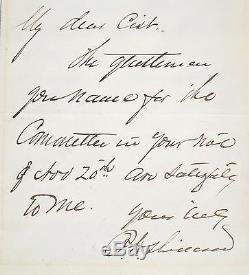 My dear Cist.
The gentlemen
you name for the
Committee in your note
of Nov 20th are satisfactory
to me.
Yours truly